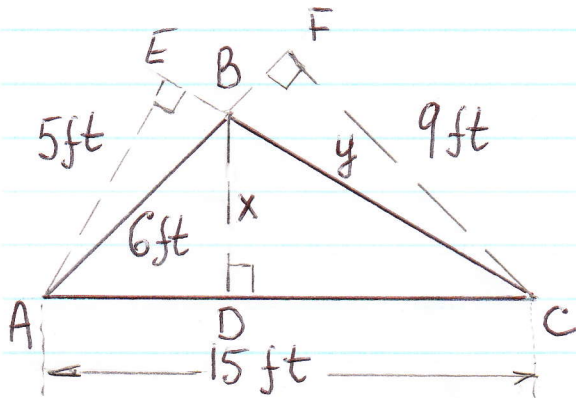 E
B
F
5ft
9ft
y
x
6ft
A
D
C
15 ft